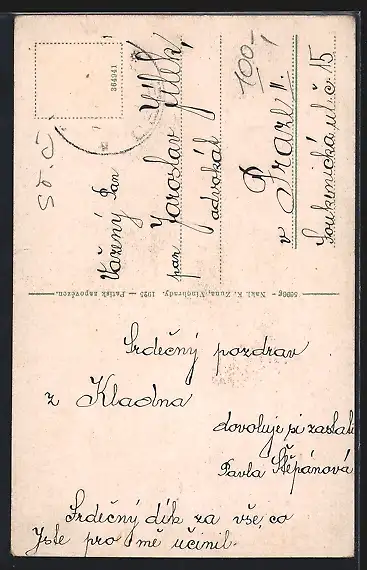 364941
100-
Vážený Pan
pan Jaroslav Jílek,
advokát
v Praze II.
Soukenická ul. č. 15
5090g - Nakl. K. Zuna, Vinohrady. 1925 - Patisk zapovězen.
Srdečný pozdrav
z Kladna
dovoluje si zaslati
Pavla Štěpánová
Srdečný dík za vše, co
Jste pro mě učinil.